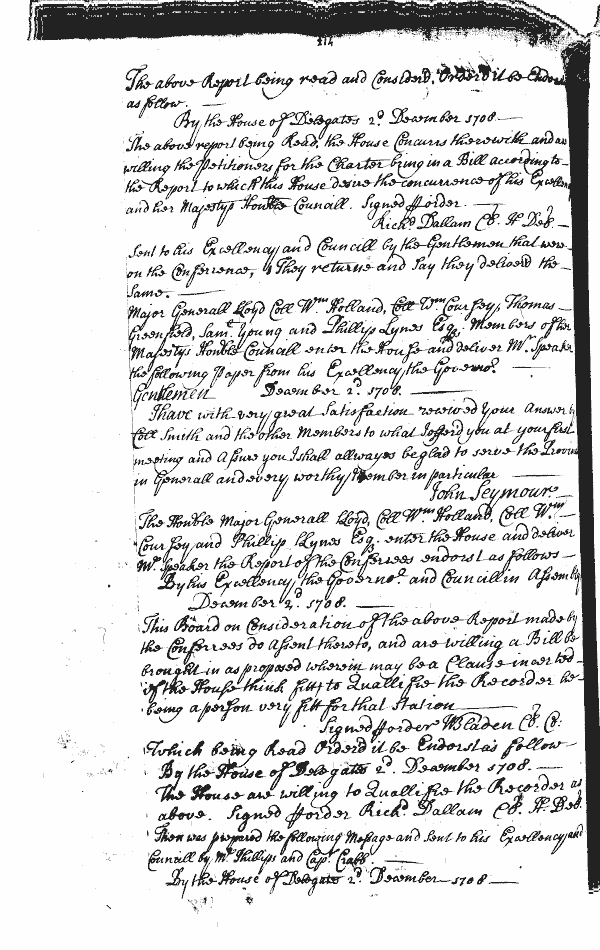 414
The above Report being read and Considerd, Orderd it be Endors
as follow.
By the House of Delegates 2d. December 1708
The above report being Read, the House Concurrs therewith and are
willing the Petitioners for the Charter bring in a Bill according to
the Report to which this House desire the concurrence of his Excellen
and her Majestys Honble Councill. Signed # order
Richd Dallam Cl. H Del.
Sent to his Excellency and Councill by the Gentlemen that were
on the Conference, They returne and say they deliverd the
Same.
Major Generall Lloyd Coll Wm Holland, Coll Wm Coursey, Thomas
Greenfield, Saml. Young and Phillip Lynes Esqs. Members of her
Majestys Honble Councill enter the House and deliver Mr. Speaker
the following Paper from his Excellency the Governor.
Gentlemen December 2d. 1708.
I have with very great Satisfaction received your Answer by
Coll Smith and the other Members to what I offerd you at your first
meeting and Assure you I shall allwayes be glad to serve the Provin
in Generall and every worthy Member in particular
John Seymour
The Honble Major Generall Lloyd, Coll Wm Holland, Coll Wm
Coursey and Phillip Lynes Esqs. enter the House and deliver
Mr. Speaker the Report of the Conferrees endorst as follows
By his Excellency the Governor. and Councill in Assembly
December 2d. 1708.
This Board on Consideration of the above Report made by
the Conferrees do Assent thereto, and are willing a Bill be
brought in as proposed wherein may be a Clause inserted
if the House think fitt to Quallifie the Recorder he
being a person very fitt for that Station
Signed # order WBladen Cl. Co:
Which being Read Orderd it be Endorst as follow
By the House of Delegates 2d. December 1708.
The House are willing to Quallifie the Recorder as
above. Signed # order Richd. Dallam Cl. H. Del.
Then was prepared the following Message and sent to his Excellency and
Councill by Mr. Phillips and Capt. Crabb.
By the House of Delegates 2d. December 1708